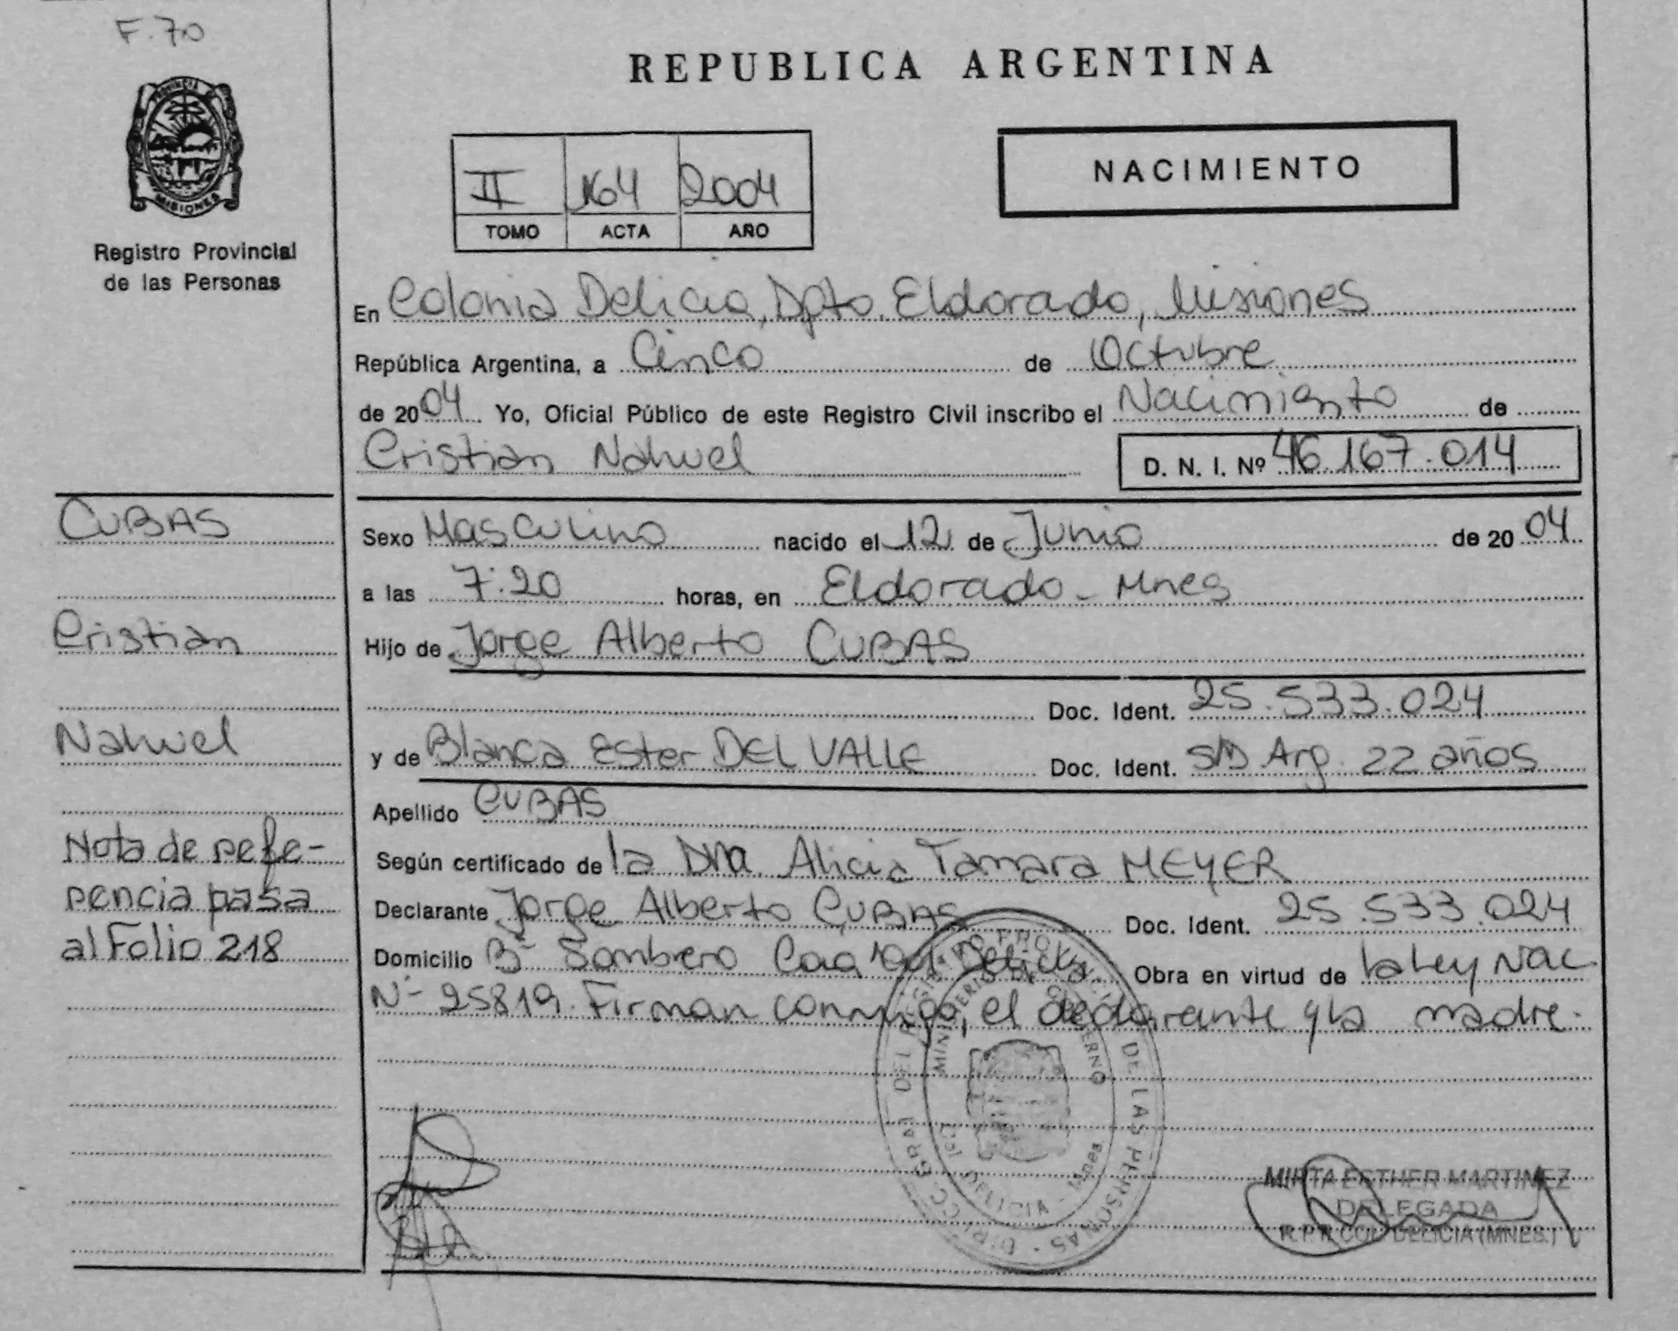 F. 70
PROVINCIA DE
MISIONES
Registro Provincial
de las Personas
REPUBLICA ARGENTINA
II 164 2004
TOMO ACTA AÑO
NACIMIENTO
En Colonia Delicia, Dpto. Eldorado, Misiones
República Argentina, a Cinco de Octubre
de 2004 Yo, Oficial Público de este Registro Civil inscribo el Nacimiento de
Cristian Nahuel D. N. I. Nº 46.167.014
CUBAS
Cristian
Nahuel
Nota de refe-
rencia pasa
al Folio 218
Sexo Masculino nacido el 12 de Junio de 2004
a las 7:20 horas, en Eldorado - Mnes
Hijo de Jorge Alberto CUBAS
Doc. Ident. 25.533.024
y de Blanca Ester DEL VALLE Doc. Ident. S/D Arg. 22 años
Apellido CUBAS
Según certificado de la Dra. Alicia Tamara MEYER
Declarante Jorge Alberto CUBAS Doc. Ident. 25.533.024
Domicilio Bº Sombrero Col. Delicia Obra en virtud de la Ley Nac
Nº 25819. Firman conmigo, el declarante y la madre.
MINISTERIO DE GOBIERNO
DE LAS PERSONAS
DELICIA - Mnes
MIRTA ESTHER MARTINEZ
DELEGADA
R.P.P. COL. DELICIA (MNES.)